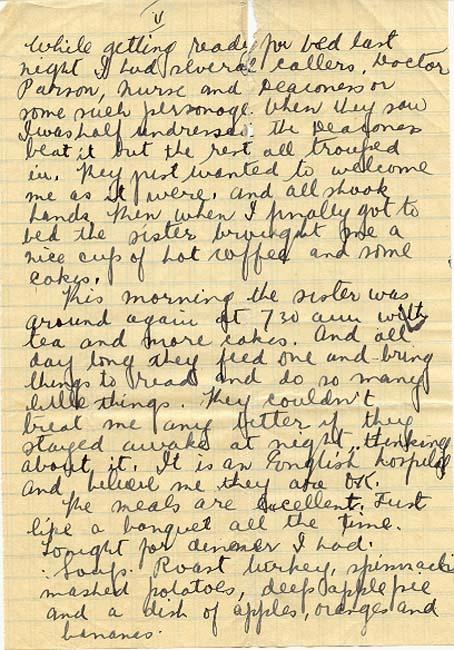 V
While getting ready for bed last
night I had several callers, Doctor
Parson, nurse and Deaconess or
some such personage. When they saw
I was half undressed the Deaconess
beat it but the rest all trouped
in. They just wanted to welcome
me as it were, and all shook
hands then when I finally got to
bed the sister brought me a
nice cup of hot coffee and some
cakes.
This morning the sister was
around again at 7 30 am with
tea and more cakes. And all
day long they feed one and bring
things to read and do so many
little things. They couldn't
treat me any better if they
stayed awake at night thinking
about it. It is an English hospital
and believe me they are OK.
The meals are excellent. Just
like a banquet all the time.
Tonight for dinner I had.
Soup. Roast turkey, spinnach
mashed potatoes, deep apple pie
and a dish of apples, oranges and
bananas.